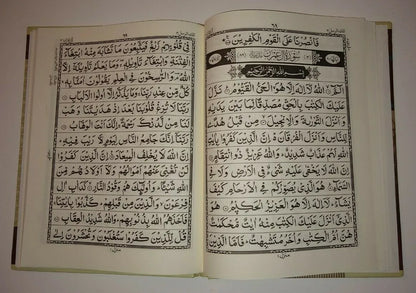 ٦٩
فَانْصُرْنَا عَلَى الْقَوْمِ الْكٰفِرِيْنَ
بِسْمِ اللّٰهِ الرَّحْمٰنِ الرَّحِيْمِ
الٓمّٓ اللّٰهُ لَاۤ اِلٰهَ اِلَّا هُوَ الْحَيُّ الْقَيُّوْمُ نَزَّلَ
عَلَيْكَ الْكِتٰبَ بِالْحَقِّ مُصَدِّقًا لِّمَا بَيْنَ يَدَيْهِ
وَاَنْزَلَ التَّوْرٰىةَ وَالْاِنْجِيْلَ مِنْ قَبْلُ هُدًى
لِّلنَّاسِ وَاَنْزَلَ الْفُرْقَانَ اِنَّ الَّذِيْنَ كَفَرُوْا بِاٰيٰتِ
اللّٰهِ لَهُمْ عَذَابٌ شَدِيْدٌ وَاللّٰهُ عَزِيْزٌ ذُو انْتِقَامٍ
اِنَّ اللّٰهَ لَا يَخْفٰى عَلَيْهِ شَيْءٌ فِي الْاَرْضِ وَلَا فِي
السَّمَآءِ هُوَ الَّذِيْ يُصَوِّرُكُمْ فِي الْاَرْحَامِ كَيْفَ
يَشَآءُ لَاۤ اِلٰهَ اِلَّا هُوَ الْعَزِيْزُ الْحَكِيْمُ هُوَ
الَّذِيْۤ اَنْزَلَ عَلَيْكَ الْكِتٰبَ مِنْهُ اٰيٰتٌ مُّحْكَمٰتٌ
هُنَّ اُمُّ الْكِتٰبِ وَاُخَرُ مُتَشٰبِهٰتٌ فَاَمَّا الَّذِيْنَ
فِيْ قُلُوْبِهِمْ زَيْغٌ فَيَتَّبِعُوْنَ مَا تَشَابَهَ مِنْهُ ابْتِغَآءَ
الْفِتْنَةِ وَابْتِغَآءَ تَاْوِيْلِهٖ وَمَا يَعْلَمُ تَاْوِيْلَهٗۤ اِلَّا
اللّٰهُ وَالرّٰسِخُوْنَ فِي الْعِلْمِ يَقُوْلُوْنَ اٰمَنَّا بِهٖ
كُلٌّ مِّنْ عِنْدِ رَبِّنَا وَمَا يَذَّكَّرُ اِلَّاۤ اُولُوا الْاَلْبَابِ
رَبَّنَا لَا تُزِغْ قُلُوْبَنَا بَعْدَ اِذْ هَدَيْتَنَا وَهَبْ
لَنَا مِنْ لَّدُنْكَ رَحْمَةً اِنَّكَ اَنْتَ الْوَهَّابُ
رَبَّنَاۤ اِنَّكَ جَامِعُ النَّاسِ لِيَوْمٍ لَّا رَيْبَ فِيْهِ
اِنَّ اللّٰهَ لَا يُخْلِفُ الْمِيْعَادَ اِنَّ الَّذِيْنَ كَفَرُوْا
لَنْ تُغْنِيَ عَنْهُمْ اَمْوَالُهُمْ وَلَاۤ اَوْلَادُهُمْ مِّنَ اللّٰهِ
شَيْئًا وَاُولٰٓئِكَ هُمْ وَقُوْدُ النَّارِ كَدَاْبِ اٰلِ
فِرْعَوْنَ وَالَّذِيْنَ مِنْ قَبْلِهِمْ كَذَّبُوْا بِاٰيٰتِنَا
فَاَخَذَهُمُ اللّٰهُ بِذُنُوْبِهِمْ وَاللّٰهُ شَدِيْدُ الْعِقَابِ
قُلْ لِّلَّذِيْنَ كَفَرُوْا سَتُغْلَبُوْنَ وَتُحْشَرُوْنَ اِلٰى